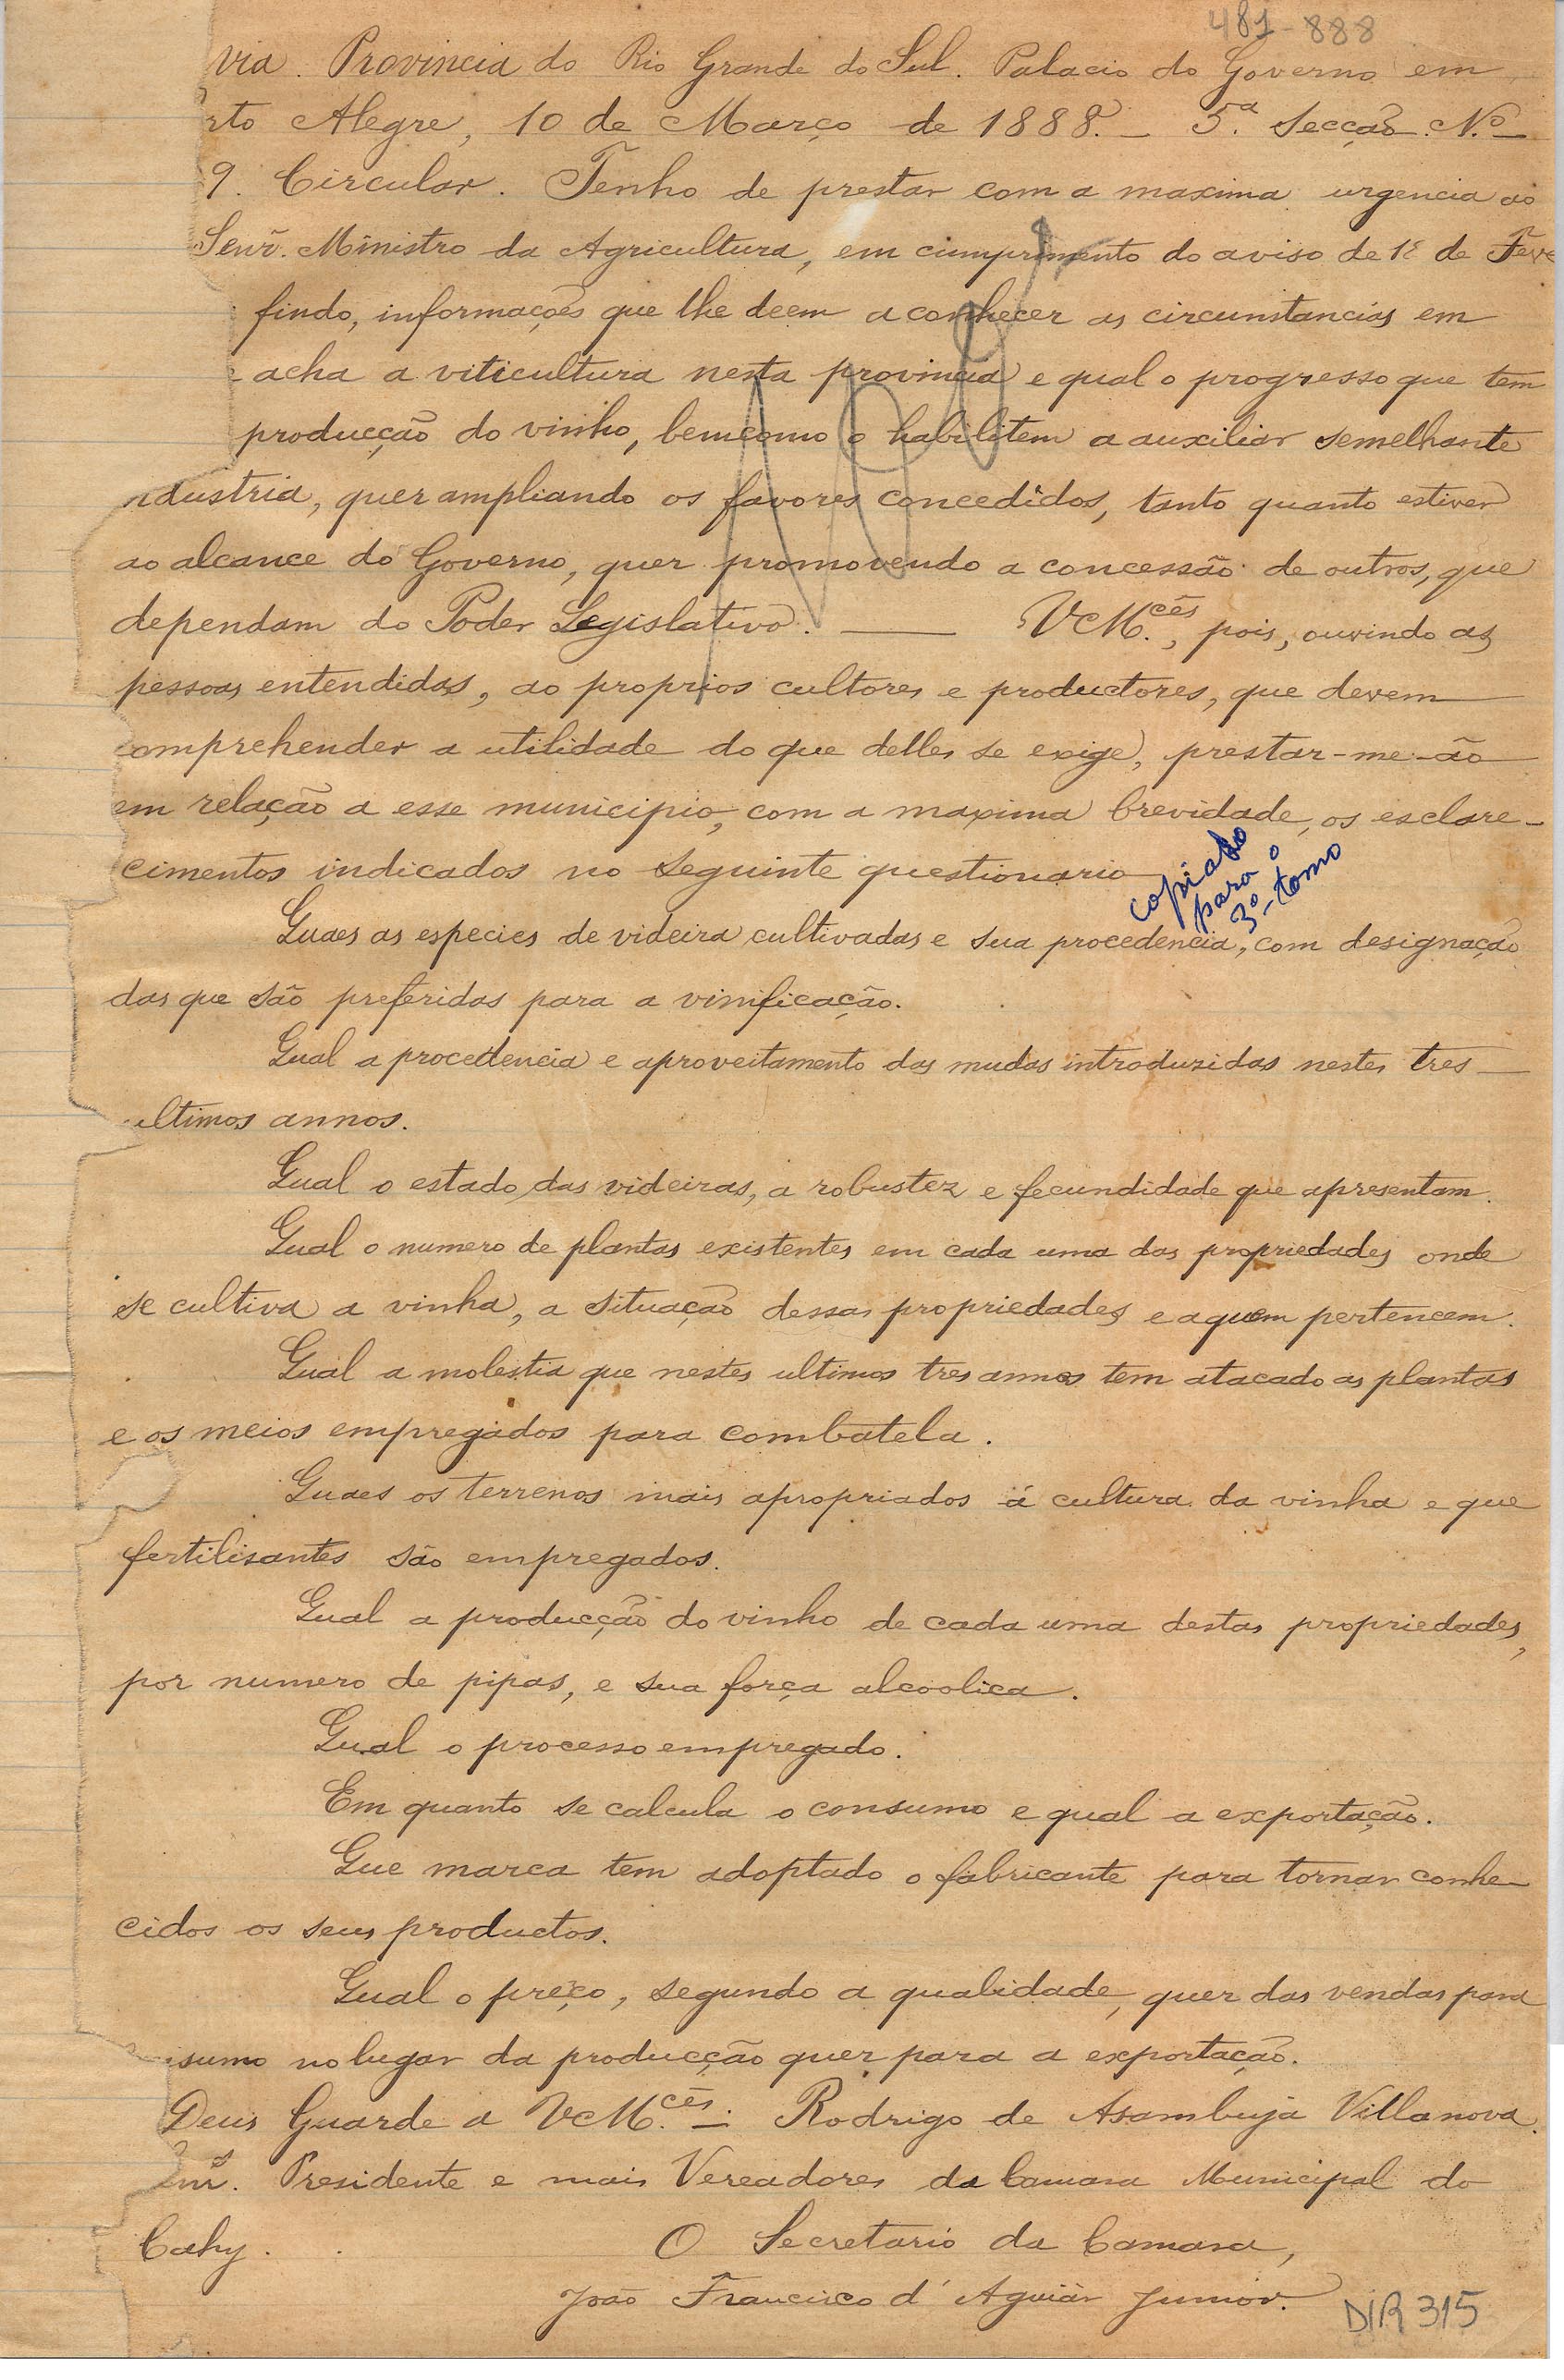 481-888
via. Provincia do Rio Grande do Sul. Palacio do Governo em
rto Alegre, 10 de Março de 1888. — 5.ª Secção. N.º
9. Circular. Tenho de prestar com a maxima urgencia ao
Senr̃. Ministro da Agricultura, em cumprimento do aviso de 1º de Feve
findo, informações que lhe deem a conhecer as circunstancias em
acha a viticultura nesta provincia e qual o progresso que tem
producção do vinho, bemcomo o habilitem a auxiliar semelhante
ndustria, quer ampliando os favores concedidos, tanto quanto estiver
ao alcance do Governo, quer promovendo a concessão de outros, que
dependam do Poder Legislativo. — VcM.cês, pois, ouvindo as
pessoas entendidas, ao proprios cultores e productores, que devem
comprehender a utilidade do que delles se exige, prestar-me-ão
em relação a esse municipio, com a maxima brevidade, os esclare-
cimentos indicados no seguinte questionario
copiado
para o
3º- tomo
Quaes as especies de videira cultivadas e sua procedencia, com designação
das que são preferidas para a vinificação.
Qual a procedencia e aproveitamento das mudas introduzidas nestes tres
ultimos annos.
Qual o estado das videiras, a robustez e fecundidade que apresentam.
Qual o numero de plantas existentes em cada uma das propriedades onde
se cultiva a vinha, a situação dessas propriedades e a quem pertencem.
Qual a molestia que nestes ultimos tres annos tem atacado as plantas
e os meios empregados para combatela.
Quaes os terrenos mais apropriados á cultura da vinha e que
fertilisantes são empregados.
Qual a producção do vinho de cada uma destas propriedades,
por numero de pipas, e sua força alcoolica.
Qual o processo empregado.
Em quanto se calcula o consumo e qual a exportação.
Que marca tem adoptado o fabricante para tornar conhe-
cidos os seus productos.
Qual o preço, segundo a qualidade, quer das vendas para
sumo no lugar da producção quer para a exportação.
Deus Guarde a VcM.cês. — Rodrigo de Asambuja Villanova.
Presidente e mais Vereadores da Camara Municipal do
Cahy. O Secretario da Camara,
João Francisco d'Aguiàr Junior.
DIR 315